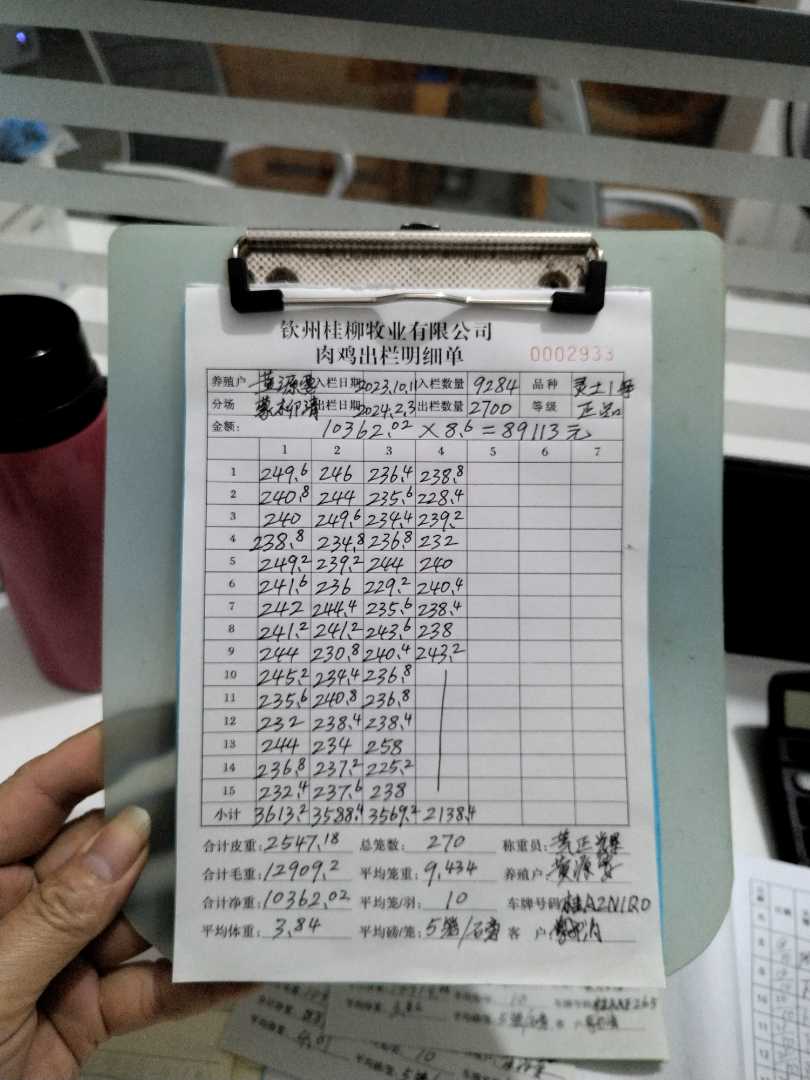 钦州桂柳牧业有限公司
肉鸡出栏明细单 0002933
养殖户 黄源 入栏日期 2023.10.11 入栏数量 9284 品种 灵土1号
分场 蒙柳清 出栏日期 2024.2.3 出栏数量 2700 等级 正品
金额: 10362.02 × 8.6 = 89113元
1 2 3 4 5 6 7
1 249.6 246 236.4 238.8
2 240.8 244 235.6 228.4
3 240 249.6 234.4 239.2
4 238.8 234.8 236.8 232
5 249.2 239.2 244 240
6 241.6 236 229.2 240.4
7 242 244.4 235.6 238.4
8 241.2 241.2 243.6 238
9 244 230.8 240.4 243.2
10 245.2 234.4 236.8
11 235.6 240.8 236.8
12 232 238.4 238.4
13 244 234 258
14 236.8 237.2 225.2
15 232.4 237.6 238
小计 3613.2 3588.4 3569.2 2138.4
合计皮重: 2547.18 总笼数: 270 称重员: 黄正
合计毛重: 12909.2 平均笼重: 9.434 养殖户: 黄源
合计净重: 10362.02 平均笼/羽: 10 车牌号码: 桂A2N1R0
平均体重: 3.84 平均磅/笼: 5笼/磅 客 户: